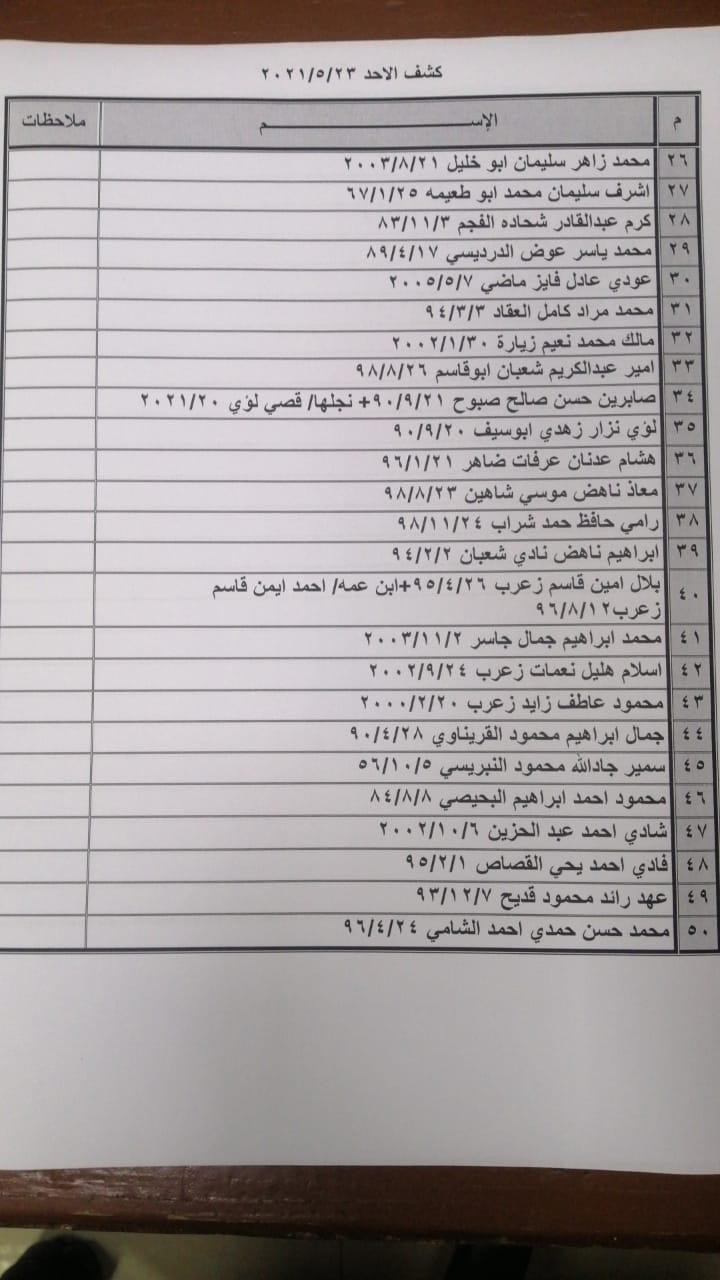 كشف الاحد ٢٠٢١/٥/٢٣
م الإســـــــــــــــــــــــم ملاحظات
٢٦ محمد زاهر سليمان ابو خليل ٢٠٠٣/٨/٢١
٢٧ اشرف سليمان محمد ابو طعيمه ٦٧/١/٢٥
٢٨ كرم عبدالقادر شحاده الفجم ٨٣/١١/٣
٢٩ محمد ياسر عوض الدرديسي ٨٩/٤/١٧
٣٠ عودي عادل فايز ماضي ٢٠٠٥/٥/٧
٣١ محمد مراد كامل العقاد ٩٤/٣/٣
٣٢ مالك محمد نعيم زيارة ٢٠٠٢/١/٣٠
٣٣ امير عبدالكريم شعبان ابوقاسم ٩٨/٨/٢٦
٣٤ صابرين حسن صالح صبوح ٩٠/٩/٢١+ نجلها/ قصي لؤي ٢٠٢١/٢٠
٣٥ لؤي نزار زهدي ابوسيف ٩٠/٩/٢٠
٣٦ هشام عدنان عرفات ضاهر ٩٦/١/٢١
٣٧ معاذ ناهض موسي شاهين ٩٨/٨/٢٣
٣٨ رامي حافظ حمد شراب ٩٨/١١/٢٤
٣٩ ابراهيم ناهض نادي شعبان ٩٤/٢/٢
٤٠ بلال امين قاسم زعرب ٩٥/٤/٢٦+ابن عمه/ احمد ايمن قاسم
زعرب٩٦/٨/١٢
٤١ محمد ابراهيم جمال جاسر ٢٠٠٣/١١/٢
٤٢ اسلام هليل نعمات زعرب ٢٠٠٢/٩/٢٤
٤٣ محمود عاطف زايد زعرب ٢٠٠٠/٢/٢٠
٤٤ جمال ابراهيم محمود القريناوي ٩٠/٤/٢٨
٤٥ سمير جادالله محمود النبريسي ٥٦/١٠/٥
٤٦ محمود احمد ابراهيم البحيصي ٨٤/٨/٨
٤٧ شادي احمد عبد الحزين ٢٠٠٢/١٠/٦
٤٨ فادي احمد يحي القصاص ٩٥/٢/١
٤٩ عهد رائد محمود قديح ٩٣/١٢/٧
٥٠ محمد حسن حمدي احمد الشامي ٩٦/٤/٢٤